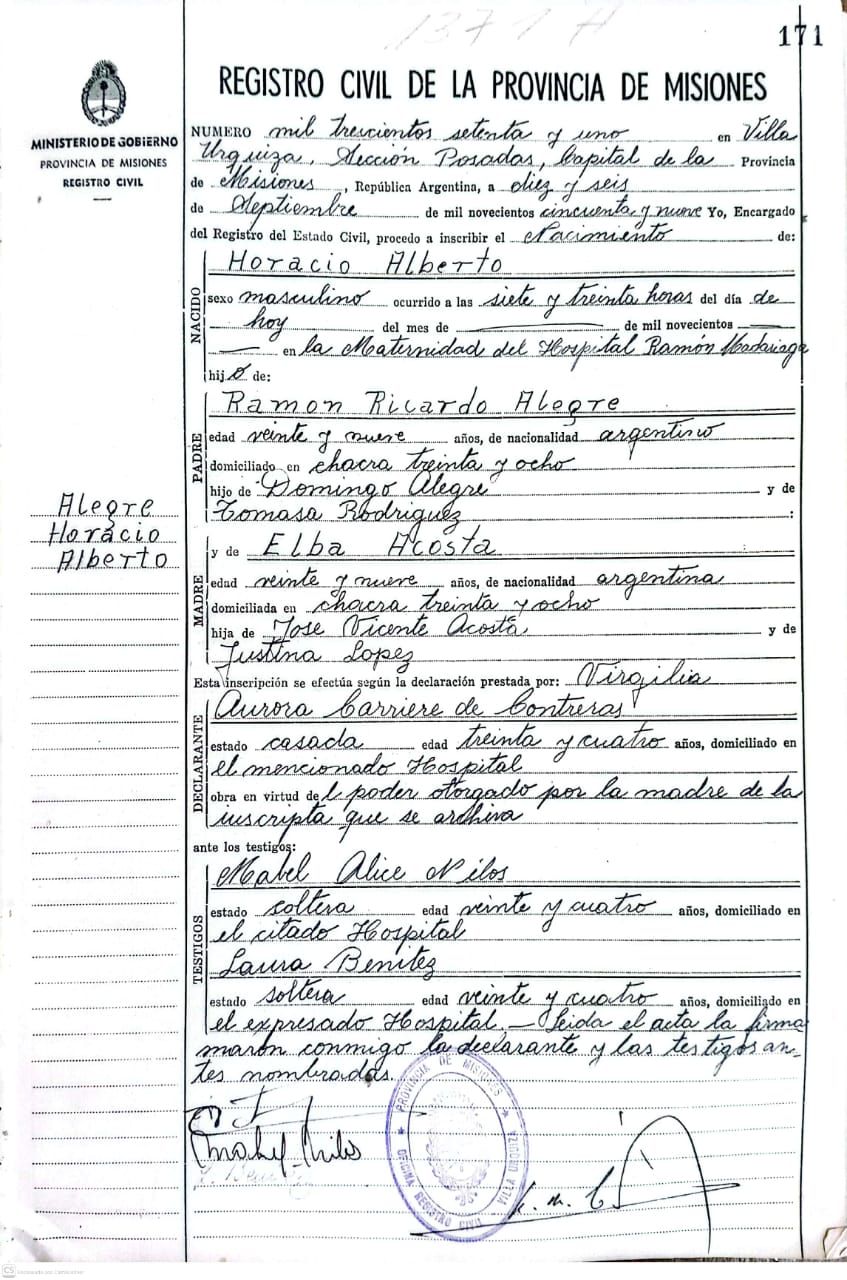 1371 A
171
REGISTRO CIVIL DE LA PROVINCIA DE MISIONES
MINISTERIO DE GOBIERNO
PROVINCIA DE MISIONES
REGISTRO CIVIL
NUMERO mil trescientos setenta y uno en Villa
Urquiza, Sección Posadas, Capital de la Provincia
de Misiones, República Argentina, a diez y seis
de Septiembre de mil novecientos cincuenta y nueve Yo, Encargado
del Registro del Estado Civil, procedo a inscribir el Nacimiento de:
NACIDO
Horacio Alberto
sexo masculino ocurrido a las siete y treinta horas del día de
hoy del mes de de mil novecientos
en la Maternidad del Hospital Ramón Madariaga
hijo de:
PADRE
Ramon Ricardo Alegre
edad veinte y nueve años, de nacionalidad argentino
domiciliado en chacra treinta y ocho
hijo de Domingo Alegre y de
Tomasa Rodriguez :
Alegre
Horacio
Alberto
MADRE
y de Elba Acosta
edad veinte y nueve años, de nacionalidad argentina
domiciliada en chacra treinta y ocho
hija de Jose Vicente Acosta y de
Justina Lopez
Esta inscripción se efectúa según la declaración prestada por: Virgilia
DECLARANTE
Aurora Carriere de Contreras
estado casada edad treinta y cuatro años, domiciliado en
el mencionado Hospital
obra en virtud del poder otorgado por la madre de la
inscripta que se archiva
ante los testigos:
TESTIGOS
Mabel Alice Nilos
estado soltera edad veinte y cuatro años, domiciliado en
el citado Hospital
Laura Benitez
estado soltera edad veinte y cuatro años, domiciliado en
el expresado Hospital.— Leida el acta la firma
maron conmigo la declarante y las testigos an-
tes nombradas.
Mabel Nilos
PROVINCIA DE MISIONES
OFICINA REGISTRO CIVIL VILLA URQUIZA
CS Escaneado con CamScanner